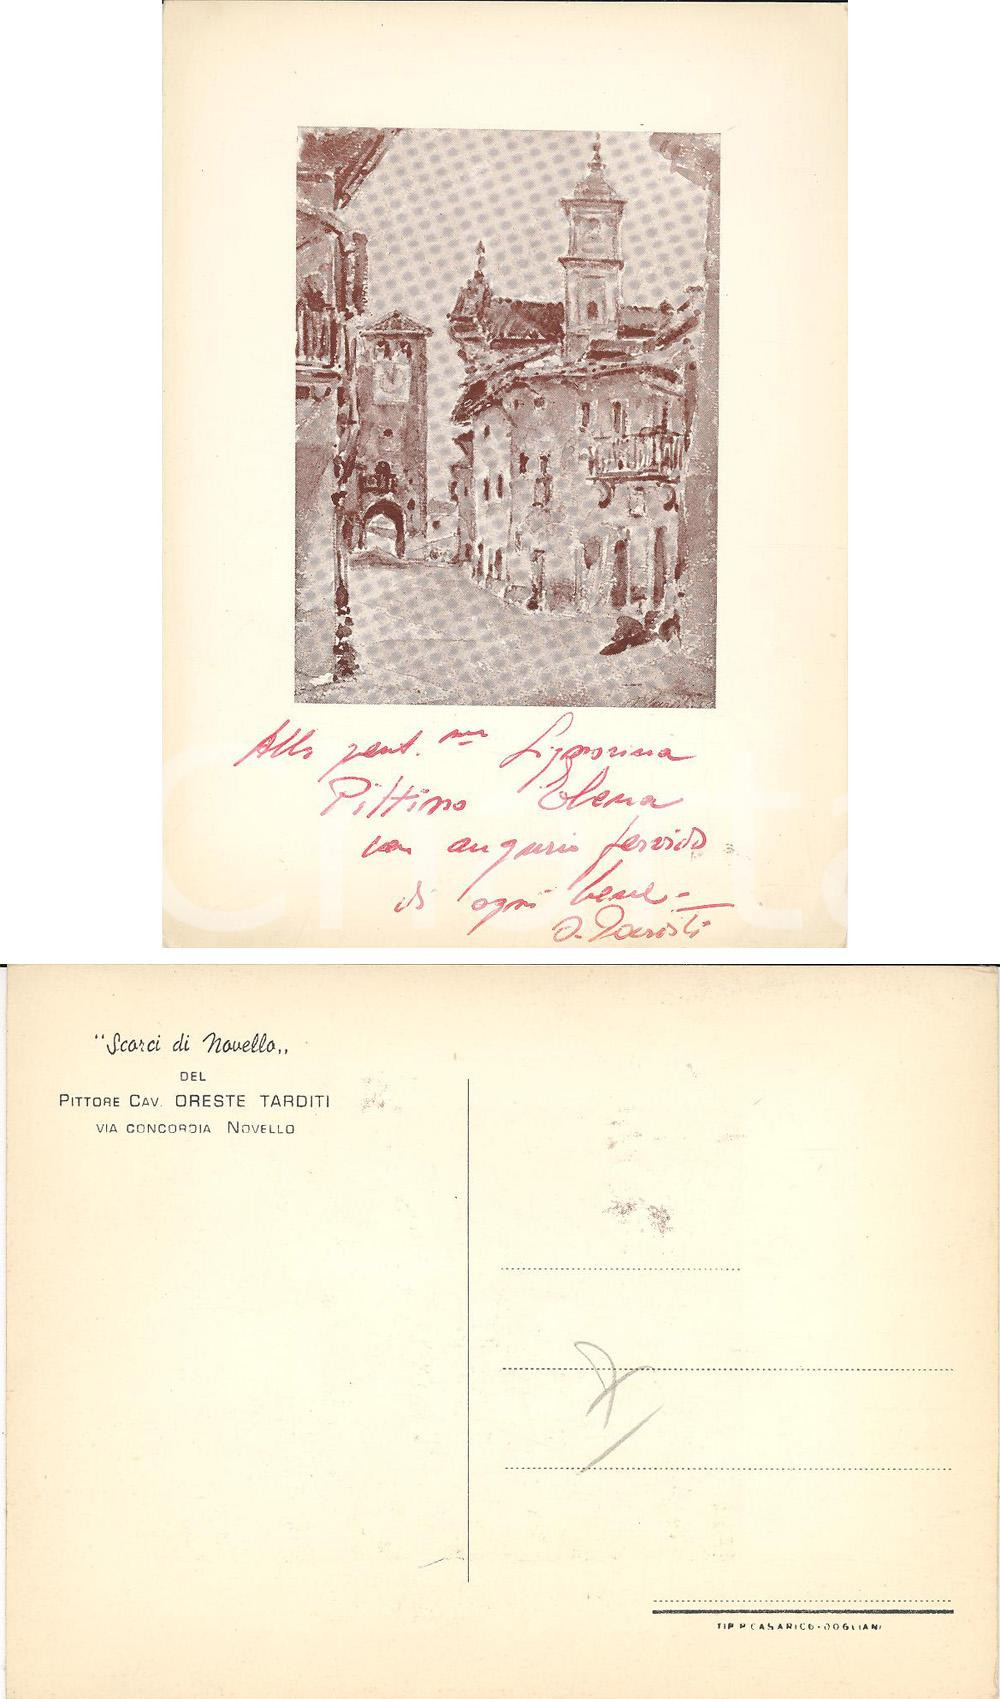 Alla gent.ma Signorina
Pittino Elena
con augurio fervido
di ogni bene -
O. Tarditi
"Scorci di Novello„
DEL
PITTORE CAV. ORESTE TARDITI
VIA CONCORDIA NOVELLO
TIP. P. CASARICO - DOGLIANI